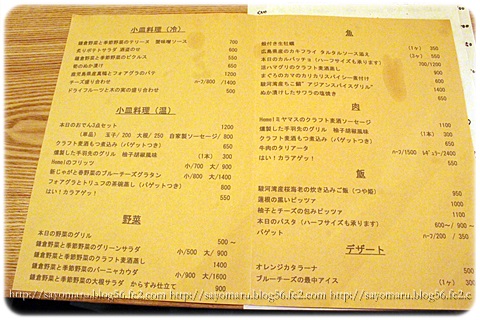 小皿料理（冷）
鎌倉野菜と季節野菜のテリーヌ 蟹味噌ソース 700
炙りポテトサラダ 酒盗のせ 600
鎌倉野菜と季節野菜のピクルス 550
旬のぬか漬け 650
鹿児島県産黒豚とフォアグラのパテ 1200
チーズ盛り合わせ ハーフ/800 /1400
ドライフルーツと木の実の盛り合わせ
小皿料理（温）
本日のおでん3点セット 1200
（単品） 玉子/200 大根/250 自家製ソーセージ/
クラフト麦酒もつ煮込み（バゲットつき） 650
燻製した手羽先のグリル 柚子胡椒風味 （1本） 300
Homelのフリッツ 小/700 大/900
新じゃがと春野菜のブルーチーズグラタン 小/500 大/800
フォアグラとトリュフの茶碗蒸し（バゲットつき）
はい！カラアゲッ！
野菜
本日の野菜のグリル 500～
鎌倉野菜と季節野菜のグリーンサラダ 小/500 大/900
鎌倉野菜と季節野菜のクラフト麦酒蒸し 1400
鎌倉野菜と季節野菜のバーニャカウダ 小/900 大/1600
鎌倉野菜と季節野菜の大根サラダ からすみ仕立て 900
魚
殻付き生牡蠣
広島県産のカキフライ タルタルソース添え （1ヶ） 350
本日のカルパッチョ（ハーフサイズも承ります） （3ヶ） 550
活ハマグリのクラフト麦酒蒸し 700/1200
まぐろのカマのカリカリスパイシー素付け 900
駿河湾産
ぬか漬けしたサワラの塩焼き
肉
Homel＆ヤマスのクラフト麦酒蒸し
燻製した手羽先のグリル 柚子胡椒風味 （1本） 300
クラフト麦酒もつ煮込み（バゲットつき） 650
牛肉のタリアータ ハーフ/1500 レギュラー/2400
はい！カラアゲッ！
飯
駿河湾産桜海老の炊き込みご飯（つや姫） 950
蓮根の黒いピッツァ 1000
柚子とチーズの包みピッツァ 1100
本日のパスタ（ハーフサイズも承ります） 600～
バゲット ハーフ/200 /350
デザート
オレンジカタラーナ
ブルーチーズの最中アイス （1ヶ） 350
http://sayomaru.blog56.fc2.com http://sayomaru.blog56.fc2.com http://sayomaru.blog56.fc2.c